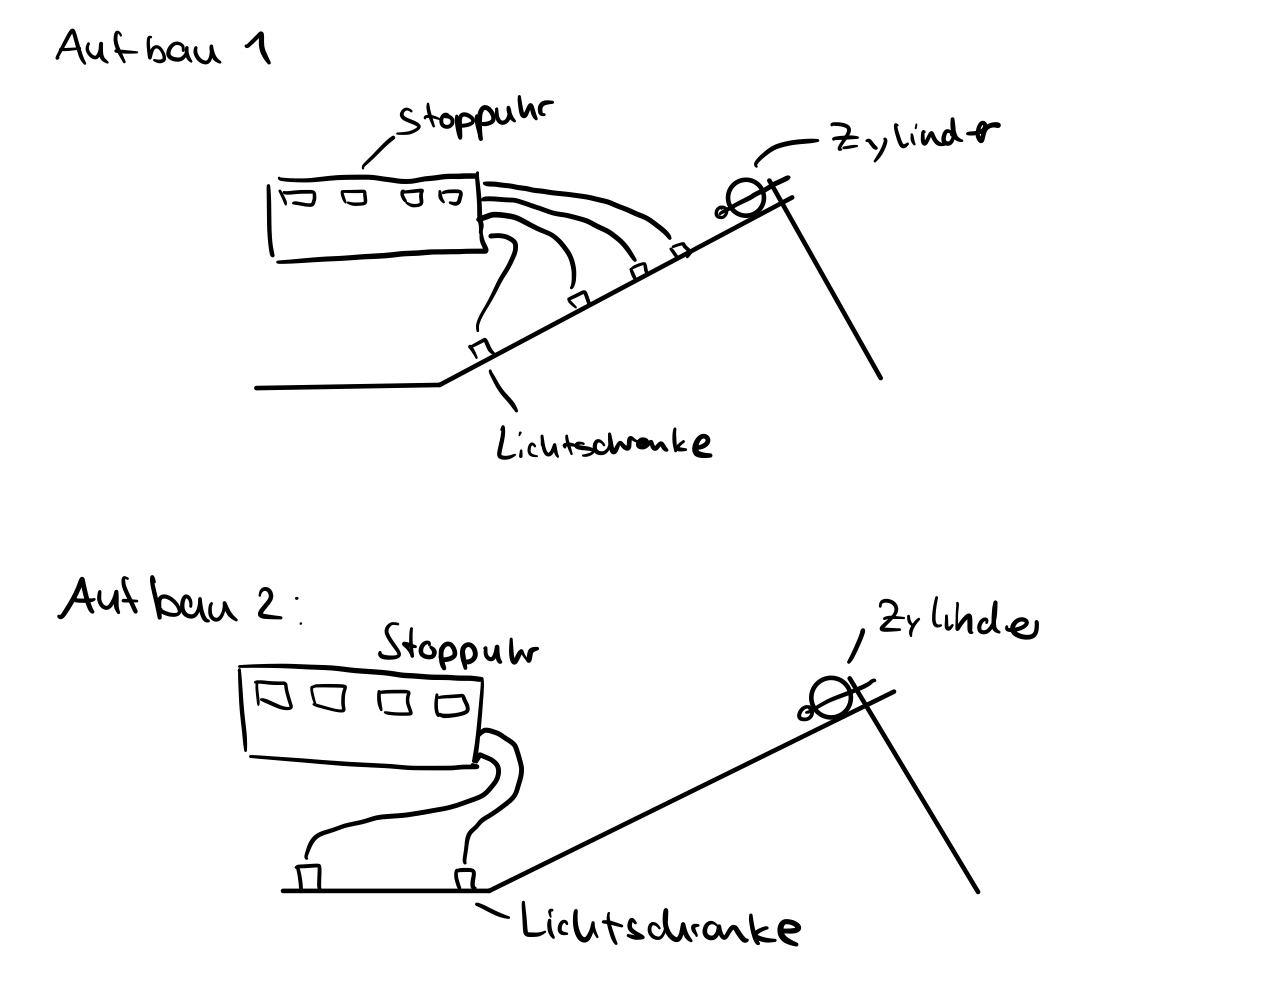 Aufbau 1
Stoppuhr
Zylinder
Lichtschranke
Aufbau 2:
Stoppuhr
Zylinder
Lichtschranke